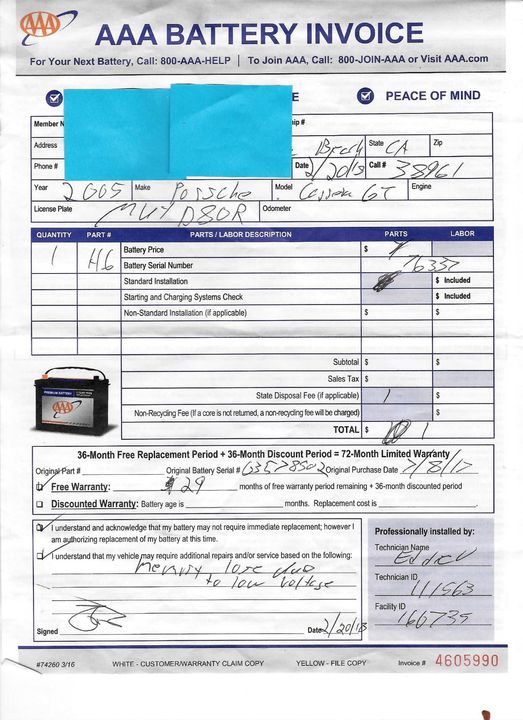 AAA
AAA BATTERY INVOICE
For Your Next Battery, Call: 800-AAA-HELP | To Join AAA, Call: 800-JOIN-AAA or Visit AAA.com
E PEACE OF MIND
Member N ip #
Address State CA Zip
Phone # Date 2/20/18 Call # 38961
Year 2005 Make Porsche Model GT Engine
License Plate Odometer
QUANTITY PART # PARTS / LABOR DESCRIPTION PARTS LABOR
1 H6 Battery Price $
Battery Serial Number 76337
Standard Installation $ Included
Starting and Charging Systems Check $ Included
Non-Standard Installation (if applicable) $ $
Subtotal $ $
Sales Tax $
State Disposal Fee (if applicable) 1 $
Non-Recycling Fee (If a core is not returned, a non-recycling fee will be charged) $
TOTAL $ 1
PREMIUM BATTERY
AAA
36-Month Free Replacement Period + 36-Month Discount Period = 72-Month Limited Warranty
Original Part # Original Battery Serial # Original Purchase Date 7/8/17
Free Warranty: 29 months of free warranty period remaining + 36-month discounted period
Discounted Warranty: Battery age is months. Replacement cost is .
I understand and acknowledge that my battery may not require immediate replacement; however I
am authorizing replacement of my battery at this time.
I understand that my vehicle may require additional repairs and/or service based on the following:
Memory lose due
to low voltage
Signed Date 2/20/18
Professionally installed by:
Technician Name
Eddie V
Technician ID
111563
Facility ID
166735
#74260 3/16 WHITE - CUSTOMER/WARRANTY CLAIM COPY YELLOW - FILE COPY Invoice # 4605990